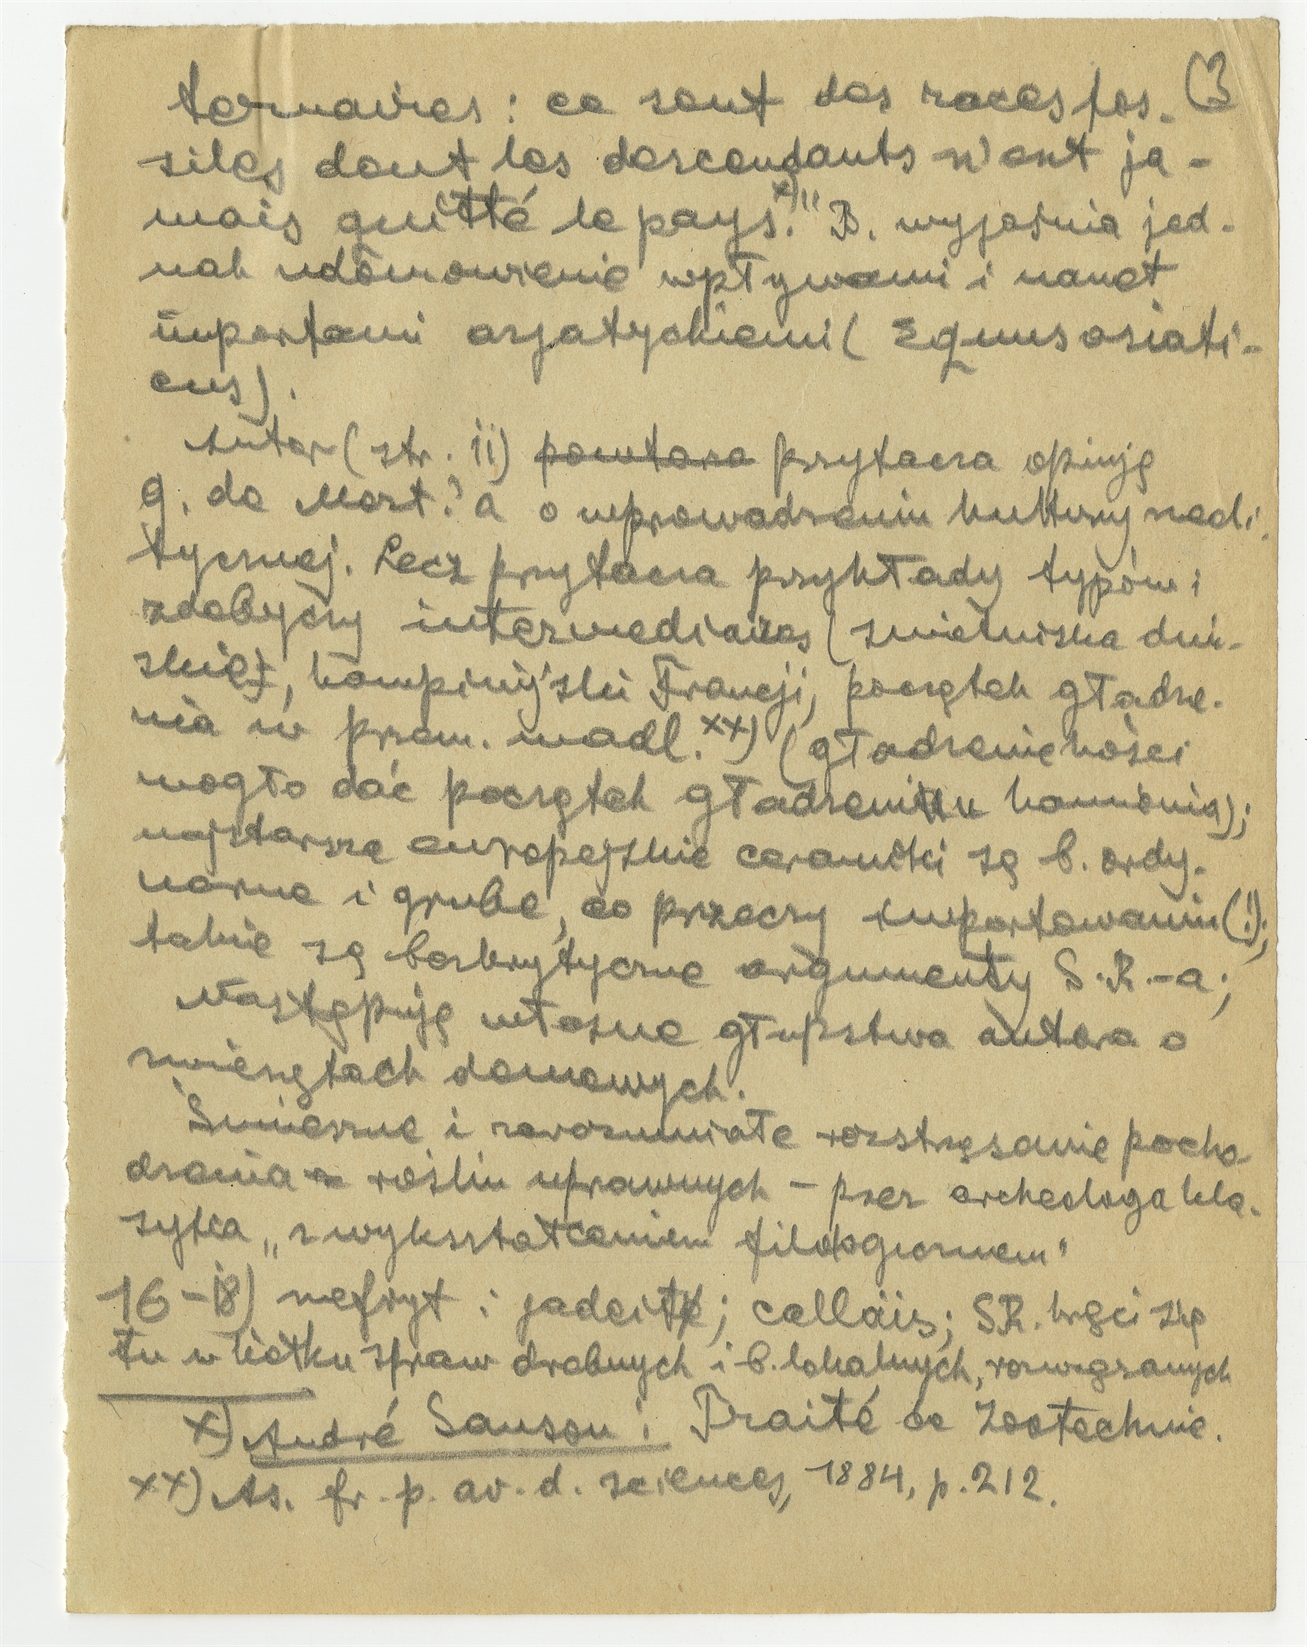 (3
ternaires: ce sont des races fos-
siles dont les descendants n'ont ja-
mais quitté le pays.x)" B. wyjaśnia jed-
nak udomowienie wpływami i nawet
importami azjatyckiemi (Equus asiati-
cus).
Autor (str. 11) powtarza przytacza opinję
G. de Mort.'a o wprowadzeniu kultury neoli-
tycznej. Lecz przytacza przykłady typów i
zdobyczy intermediaires (śmietniska duń-
skie, kampinijski Francji, początek gładze-
nia w przem. madl.xx) (gładzenie kości
mogło dać początek gładzeniu kamienia);
najstarsze europejskie ceramiki są b. ordy-
narne i grube, co przeczy importowaniu (!);
takie są bezkrytyczne argumenty S.R.-a;
Następują własne głupstwa autora o
zwierzętach domowych.
Śmieszne i zarozumiałe roztrząsanie pocho-
dzenia roślin uprawnych – przez archeologa kla-
syka „z wykształceniem filologicznem"
16-18) nefryt i jadeit; callaïs; S.R. kręci się
tu w kółku spraw drobnych i b. lokalnych, rozwiązanych
x) André Sanson: Traité de Zootechnie.
xx) As. fr. p. av. d. sciences, 1884, p. 212.